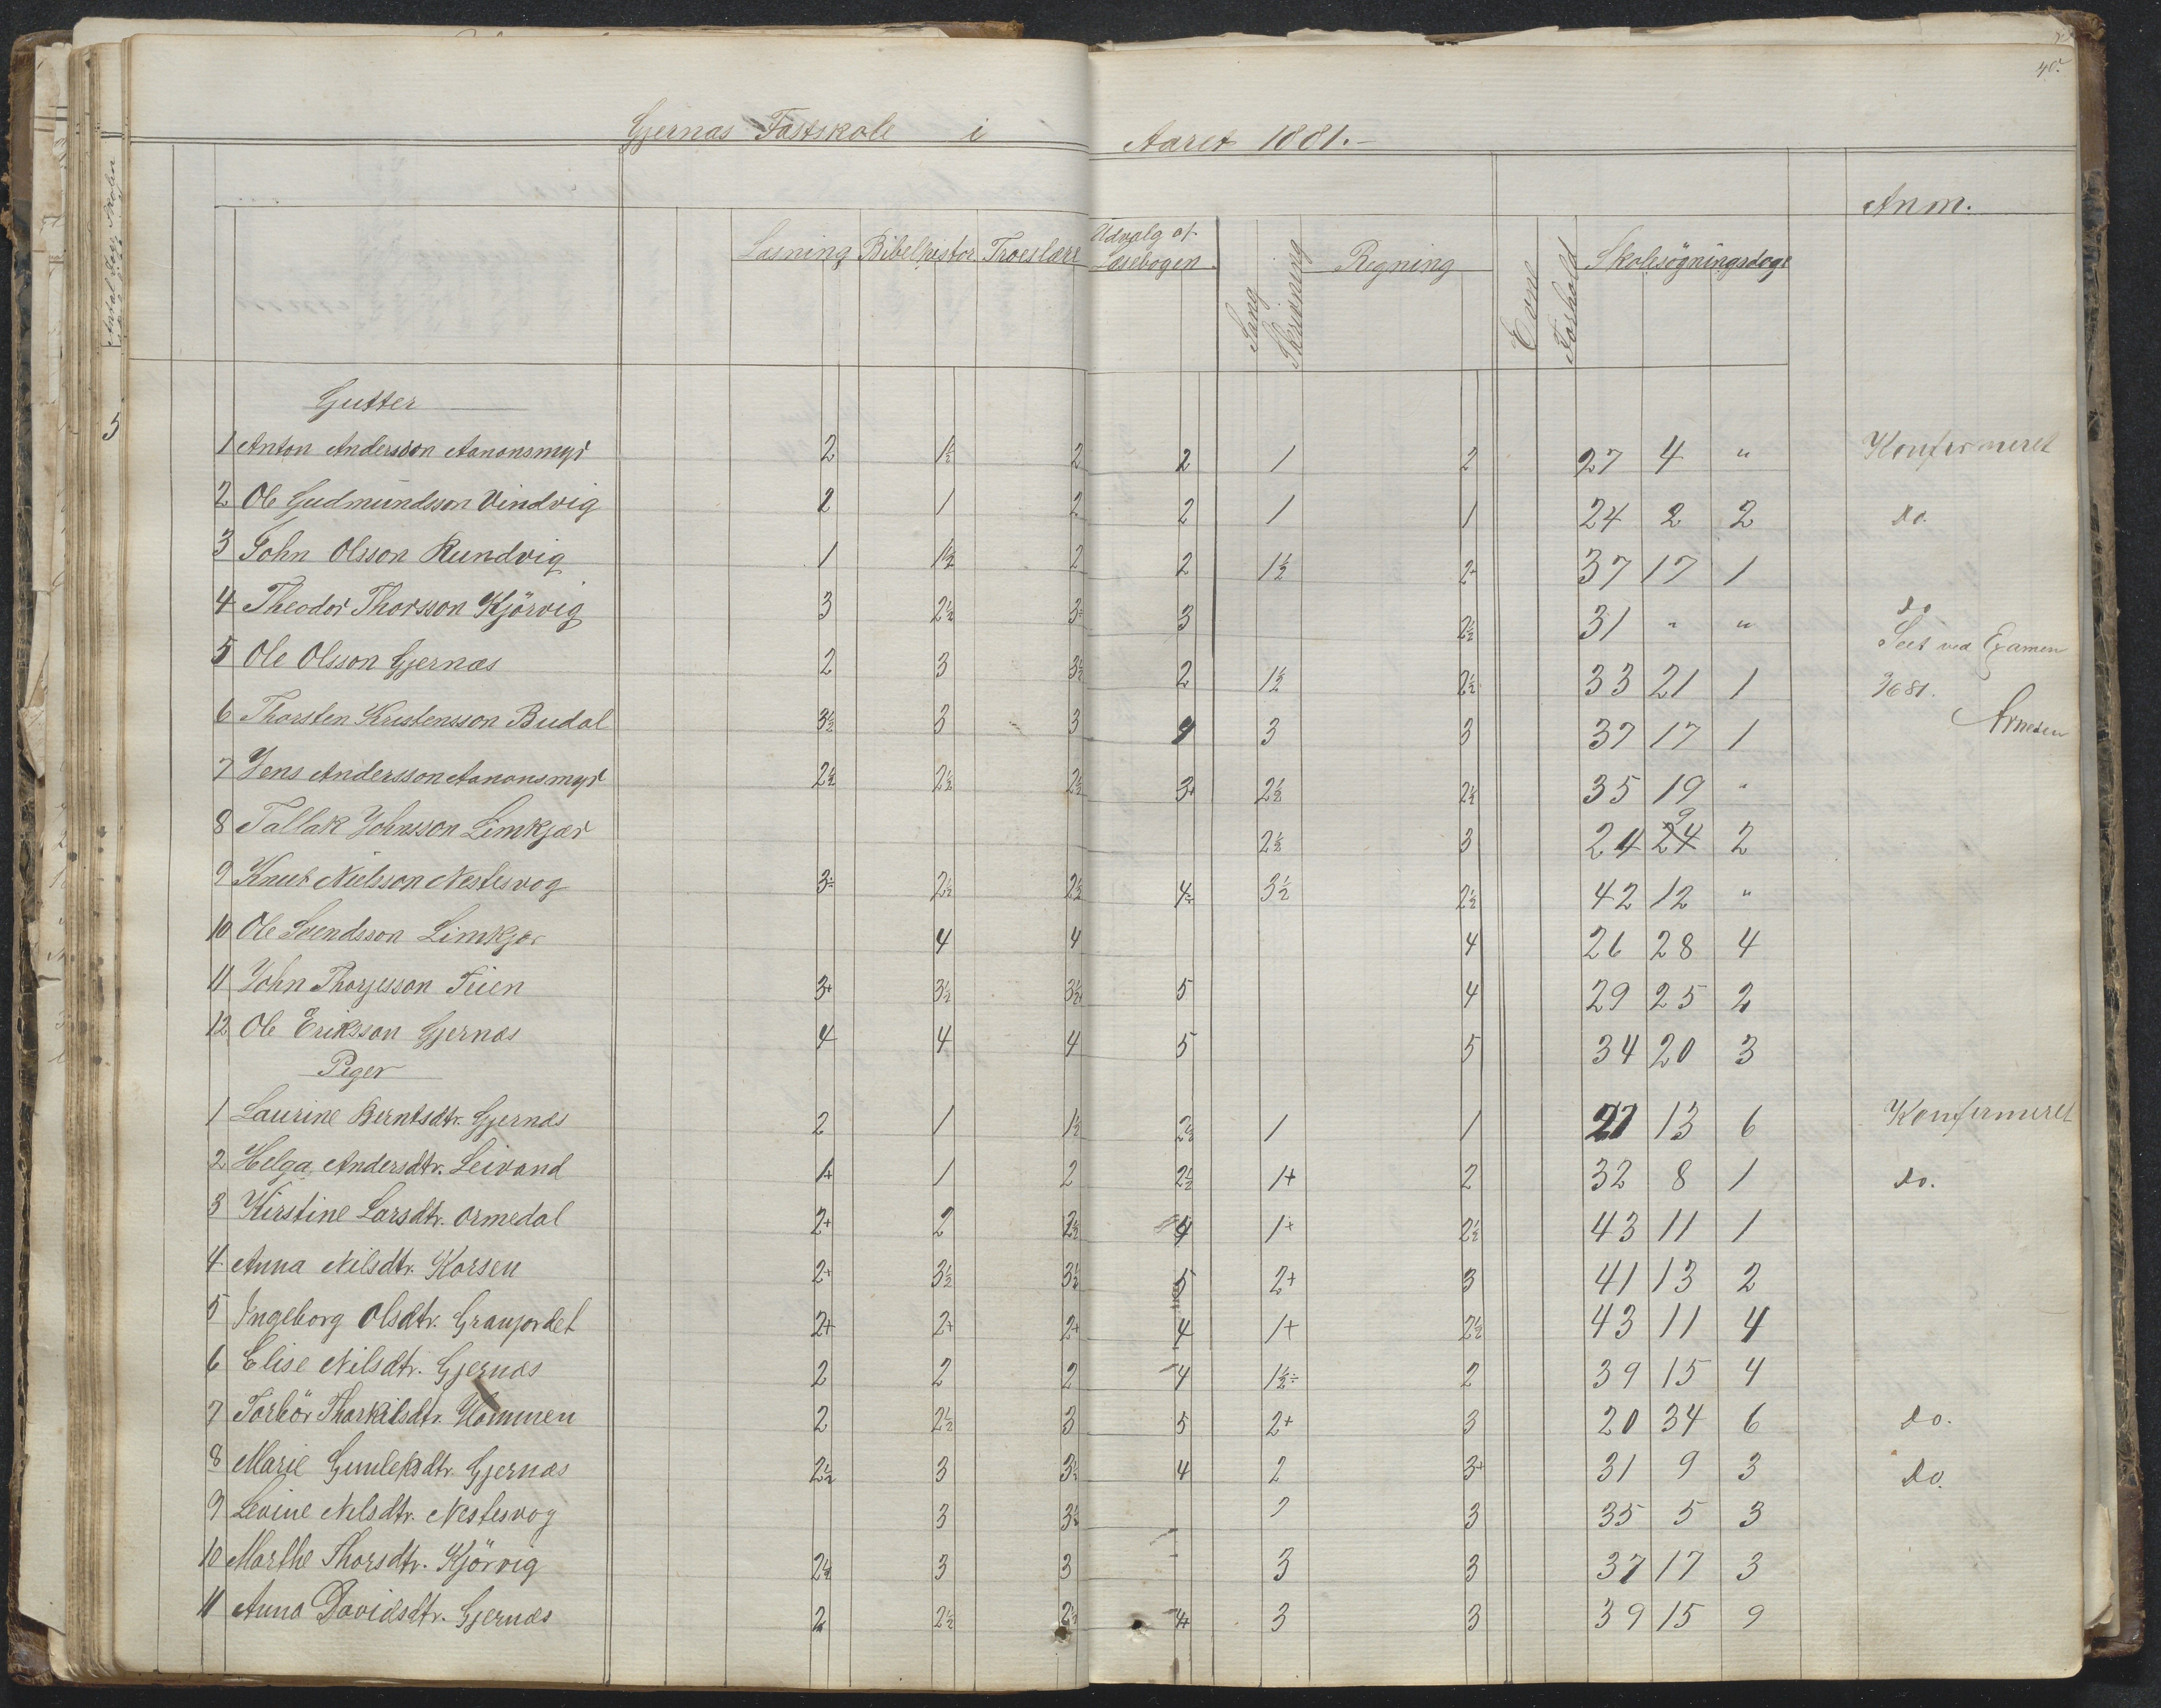 40.
Gjernæs Fastskole i Aaret 1881.
Anm.
Læsning Bibelhistor Troeslære Udvalg af Læsebogen Sang Skrivning Regning Evne Forhold Skolesøgningsdage
Antal Dage Skolen
5
Gutter
1 Anton Andersson Aanonsmyr 2 1½ 2 2 1 2 27 4 " Konfirmeret
2 Ole Gudmundsson Vindvig 2 1 2 2 1 1 24 2 2 do.
3 John Olsson Rundvig 1 1½ 2 2 1½ 2+ 37 17 1
4 Theodor Thorsson Kjörvig 3 2½ 3÷ 3 2½ 31 " " do
5 Ole Olsson Gjernæs 2 3 3½ 2 1½ 2½ 33 21 1
Seet ved Examen
Arnesen
6 Thorsten Kristensson Budal 3½ 3 3 4 3 3 37 17 1
7 Jens Andersson Aanonsmyr 2½ 2½ 2½ 3+ 2½ 2½ 35 19 "
8 Tallak Johnsson Limkjær 2½ 3 24 24 9 2
9 Knut Nielsson Nestesvog 3÷ 2½ 2½ 4÷ 3½ 2½ 42 12 "
10 Ole Svendsson Limkjær 4 4 4 26 28 4
11 John Thorjesson Tiien 3+ 3½ 3½+ 5 4 29 25 2
12 Ole Eriksson Gjernæs 4 4 4 5 5 34 20 3
Piger
1 Laurine Berntsdtr. Gjernæs 2 1 1½ 2½ 1 1 27 13 6 Konfirmeret
2 Helga Andersdtr. Leivand 1+ 1 2 2½ 1+ 2 32 8 1 do.
3 Kirstine Larsdtr. Ormedal 2+ 2 2½ 4 1+ 2½ 43 11 1
4 Anna Nilsdtr. Korsen 2+ 3½ 3½ 5 2+ 3 41 13 2
5 Ingeborg Olsdtr. Graujordet 2+ 2+ 2+ 4 1+ 2½ 43 11 4
6 Elise Nilsdtr. Gjernæs 2 2 2 4 1½÷ 2 39 15 4
7 Torbör Thorkilsdtr. Hommen 2 2½ 3 5 2+ 3 20 34 6 do.
8 Marie Gunleksdtr. Gjernæs 2½ 3 3½ 4 2 3+ 31 9 3 do.
9 Levine Nilsdtr. Nestesvog 3 3½ 2 3 35 5 3
10 Marthe Thorsdtr. Kjörvig 2½ 3 3 3 3 37 17 3
11 Anna Davidsdtr. Gjernæs 2 2½ 2½ 4+ 3 3 39 15 9